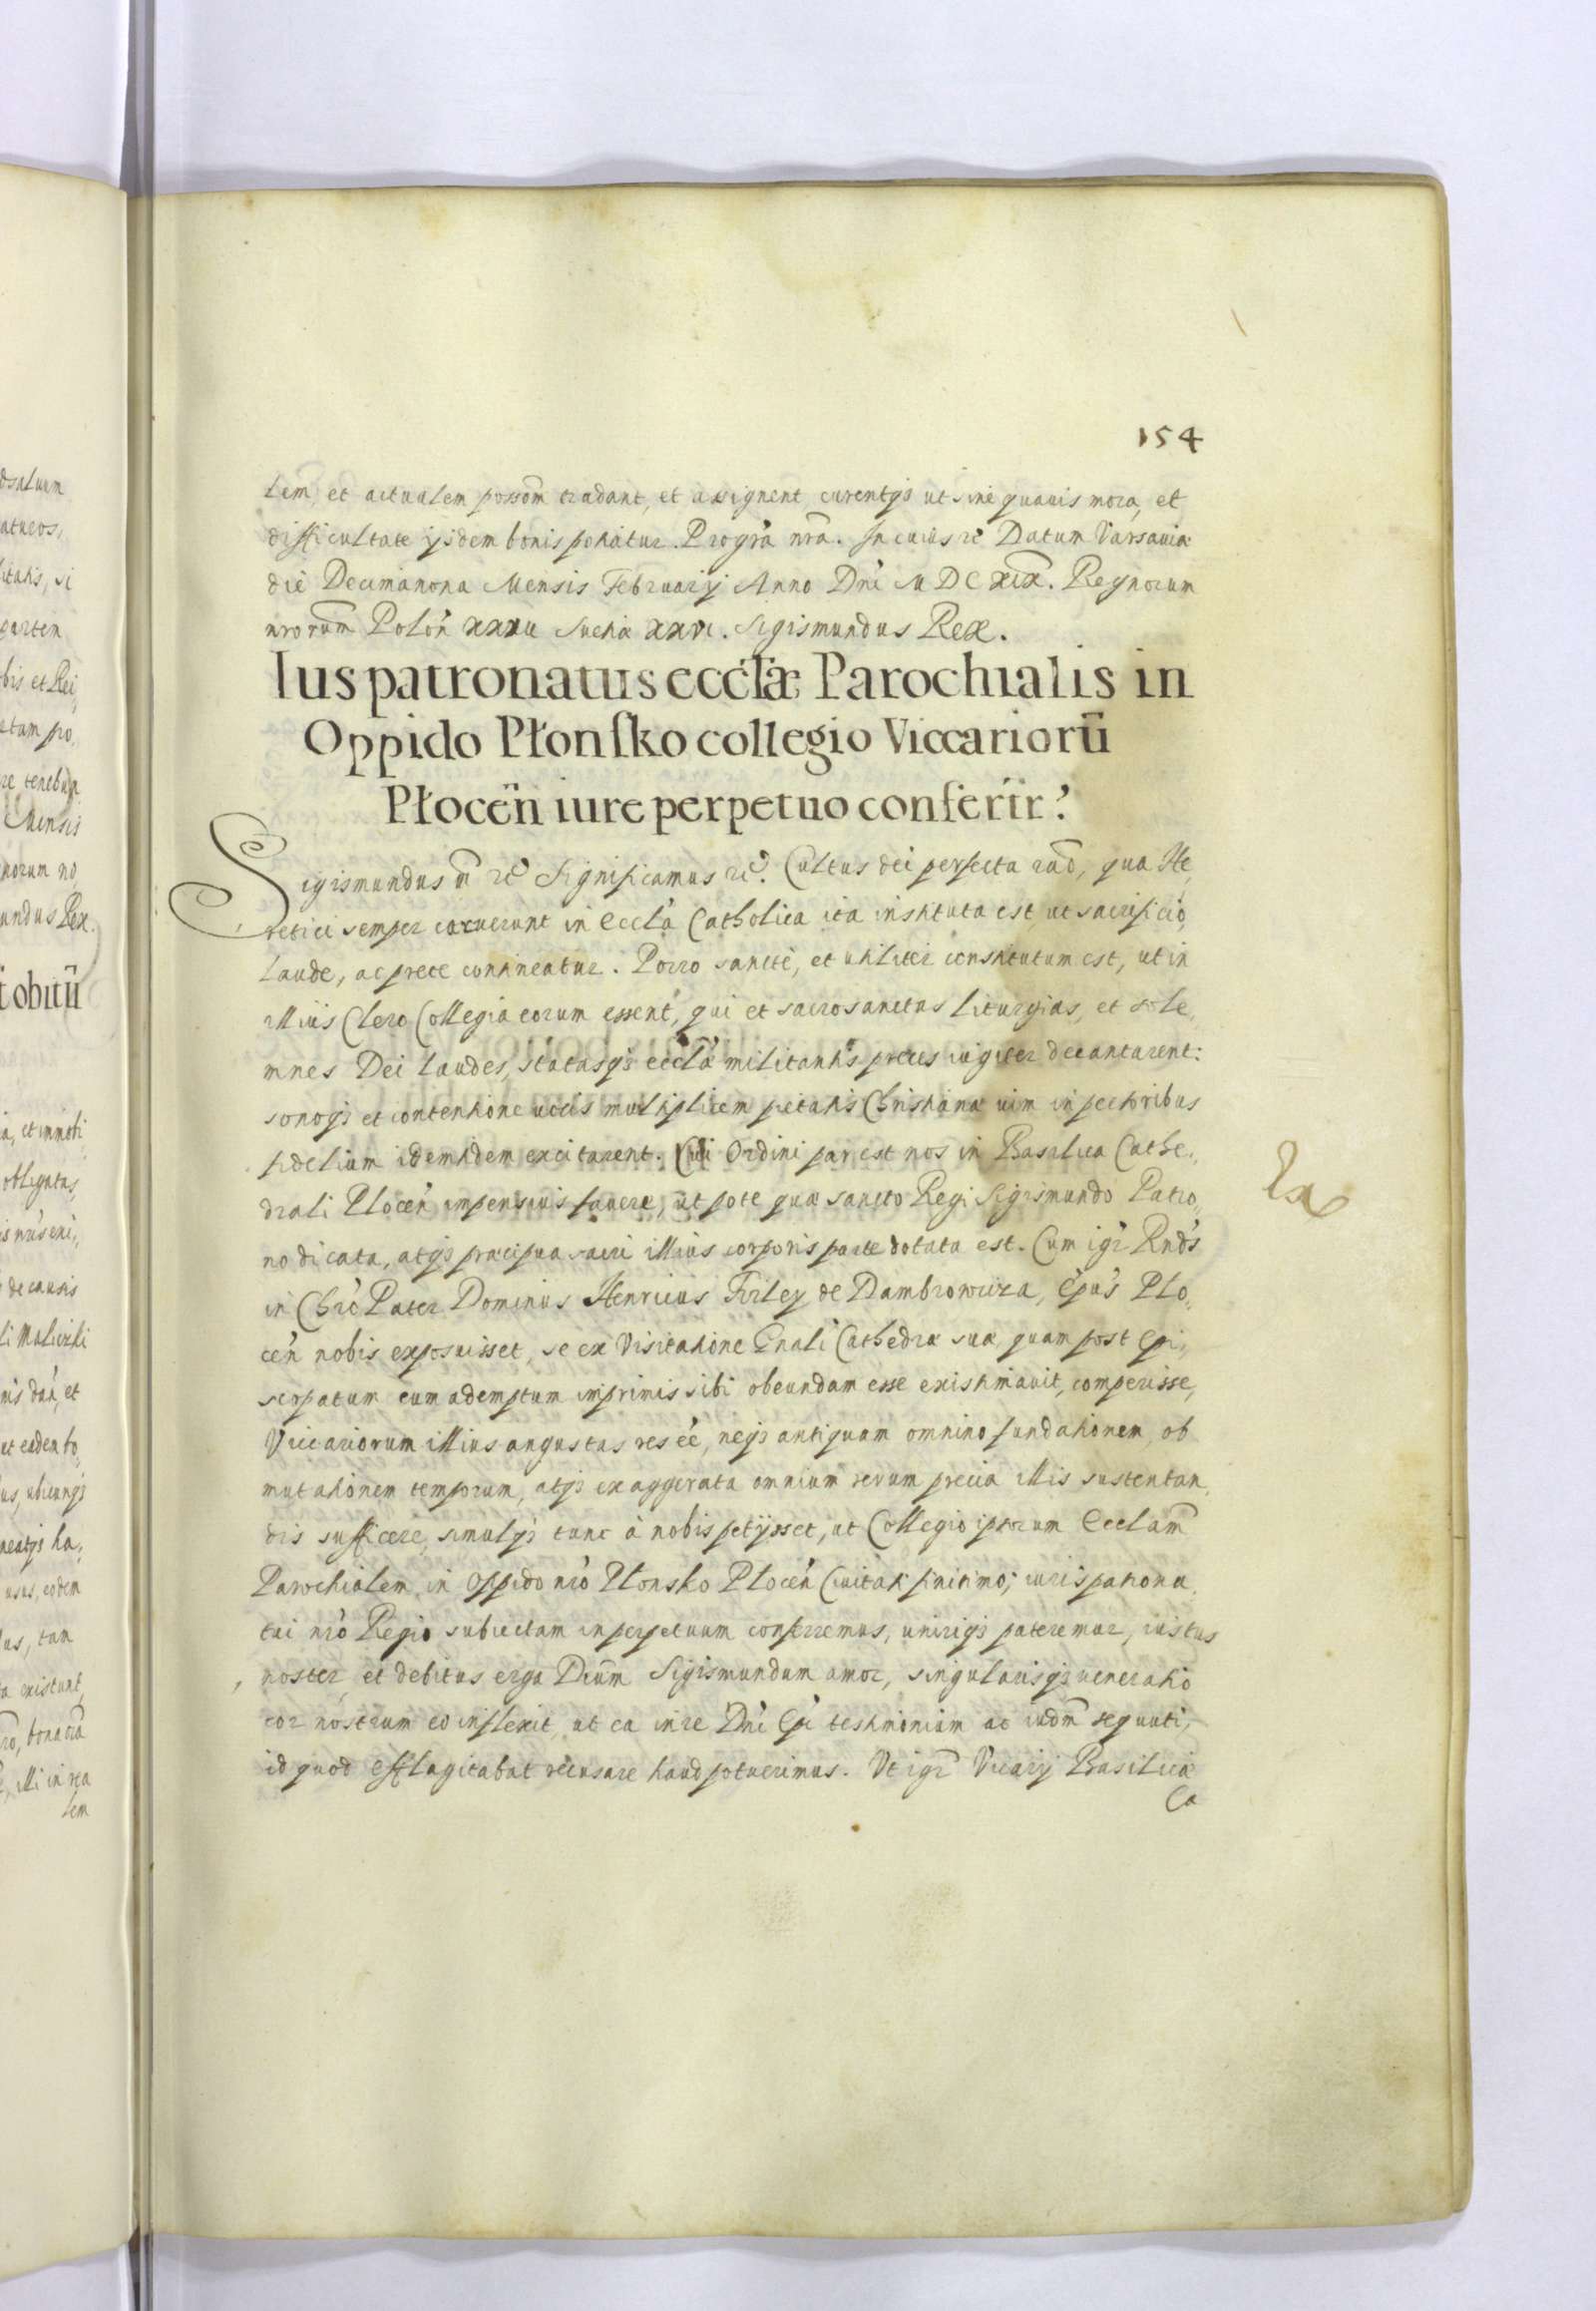 154
lem et actualem possom̃ tradant, et assignent curentqꝫ ut sine quauis mora, et
difficultate ijsdem bonis potiatur. Pro gr̃a nr̃a. In cuius rẽ Datum Varsauiæ
die Decimanona Mensis Februarij Anno Dnĩ M DC XIX. Regnorum
nrorum̃ Poloñ XXXII Sueciæ XXVI. Sigismundus Rex.
Ius patronatus eccłæ Parochialis in
Oppido Płonſko collegio Viccariorū
Płoceñ iure perpetuo confertr̃.
Sigismundus &c. Significamus &c. Cultus dei perfecta rãõ, qua Hæ„
retici semper caruerunt in Ecclã Catholica ita instituta est, ut sacrificio,
laude, ac prece contineatur. Porro sanctè, et utiliter constitutum est, ut in
illius Clero Collegia eorum essent, qui et sacrosanctas liturgias, et sole„
mnes Dei laudes, statasqꝫ ecclã militantis preces iugiter decantarent:
sonoqꝫ et contentione uocis multiplicem pietatis Christianæ uim in pectoribus
fidelium identidem excitarent. Cui Ordini par est nos in Basilica Cathe„
drali Ploceñ impensius fauere, ut pote quæ sancto Regi Sigismundo Patro„
no dicata, atqꝫ præcipua sacri illius corporis parte dotata est. Cum igr̃ Rnds̃
in Chrõ Pater Dominus Henricus Firley de Dambrowicza, Epus̃ Plo„
ceñ nobis exposuisset, se ex Visitatione Gnali Cathedræ suæ, quam post Epi„
scopatum eum ademptum inprimis sibi obeundam esse existimauit, comperisse,
Viccariorum illius angustas res eẽ, neqꝫ antiquam omnino fundationem, ob
mutationem temporum, atqꝫ exaggerata omnium rerum precia illis sustentan„
dis sufficere, simulqꝫ tunc à nobis petijsset, ut Collegio ipsorum Ecclam̃
Parochialem in Oppido nrõ Plonsko Ploceñ Ciuitati finitimo, iuris patrona„
tui nrõ Regio subiectam in perpetuum conferremus, uniriqꝫ pateremur, iustus
noster et debitus erga Diuũm Sigismundum amor, singularisqꝫ ueneratio
cor nostrum eo inflexit, ut ea in re Dnĩ Epĩ testimonium ac iudm̃ sequuti,
id quod efflagitabat recusare haud potuerimus. Vt igr̃ Vicarij Basilicæ
Ca